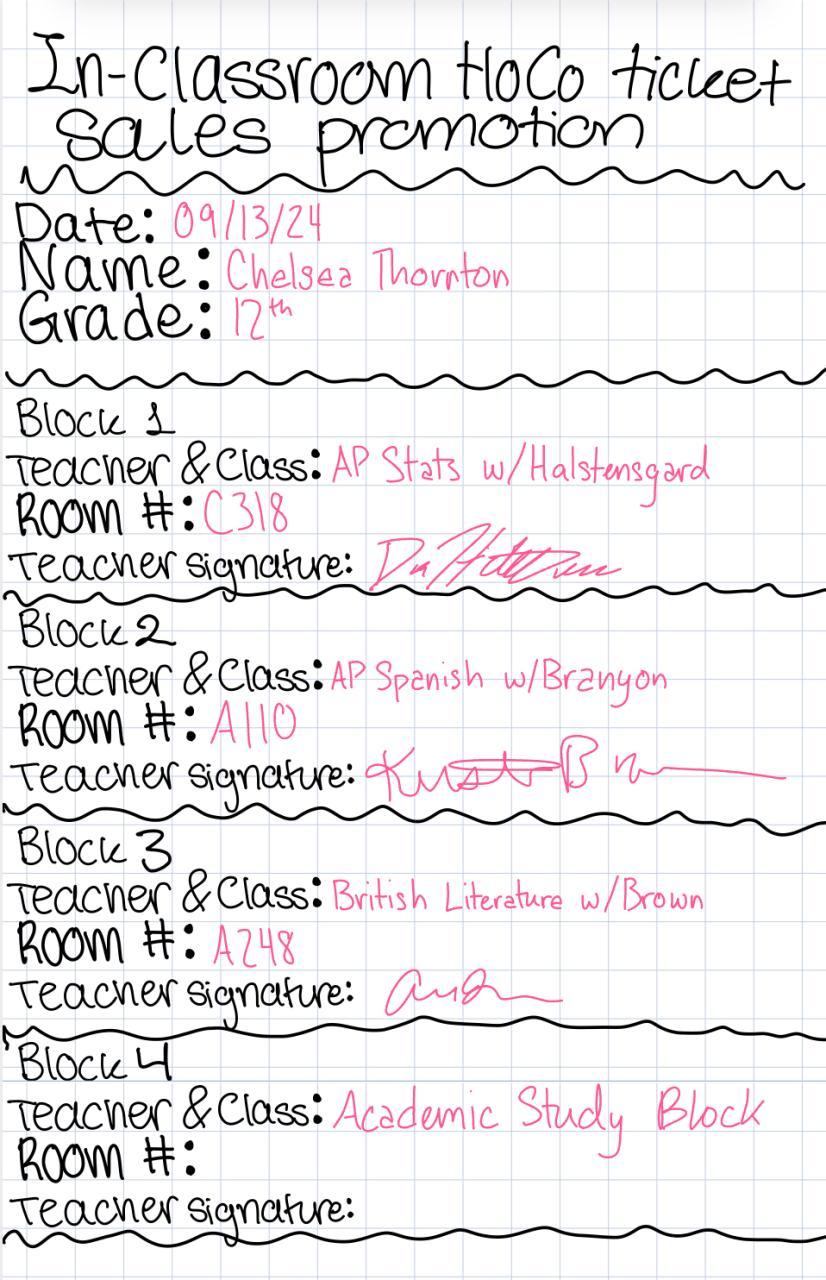 In-Classroom HoCo ticket
sales promotion
Date: 09/13/24
Name: Chelsea Thornton
Grade: 12th
Block 1
Teacher & Class: AP Stats w/Halstensgard
Room #: C318
Teacher signature:
Block 2
Teacher & Class: AP Spanish w/Branyon
Room #: A110
Teacher signature:
Block 3
Teacher & Class: British Literature w/Brown
Room #: A248
Teacher signature:
Block 4
Teacher & Class: Academic Study Block
Room #:
Teacher signature: